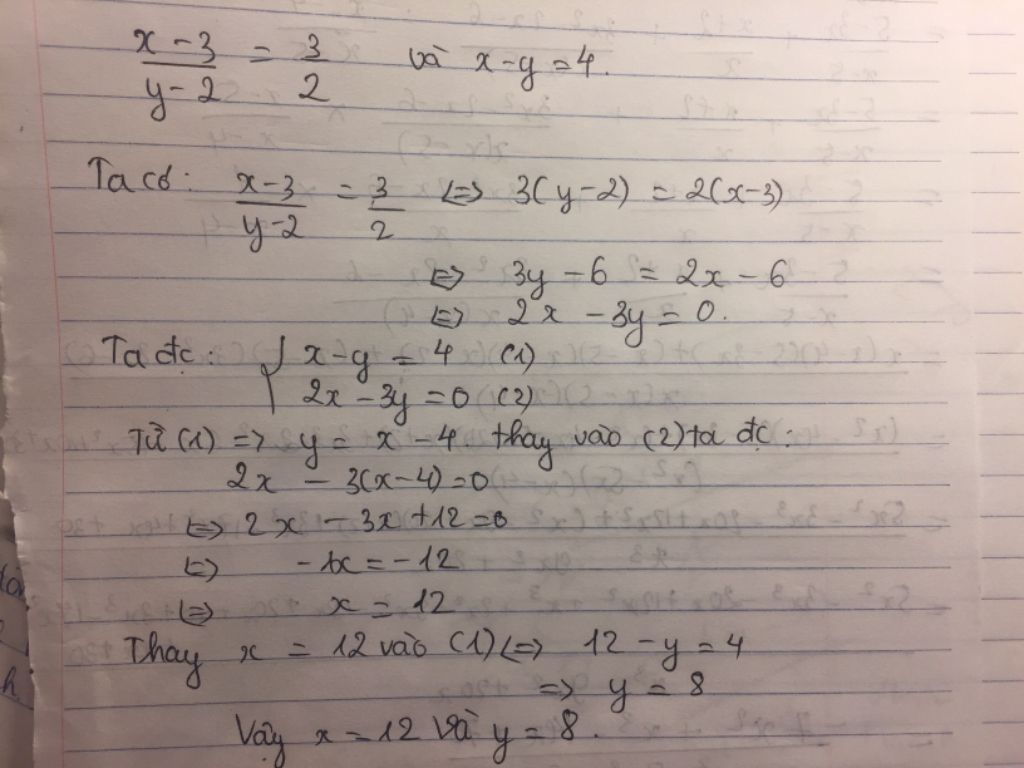 x-3/y-2 = 3/2 và x-y=4.
Ta có: x-3/y-2 = 3/2 <=> 3(y-2) = 2(x-3)
<=> 3y - 6 = 2x - 6
<=> 2x - 3y = 0.
Ta đc: { x-y = 4 (1)
2x - 3y = 0 (2)
Từ (1) => y = x - 4 thay vào (2) ta đc:
2x - 3(x-4) = 0
<=> 2x - 3x + 12 = 0
<=> -1x = -12
<=> x = 12
Thay x = 12 vào (1) <=> 12 - y = 4
=> y = 8
Vậy x = 12 và y = 8.